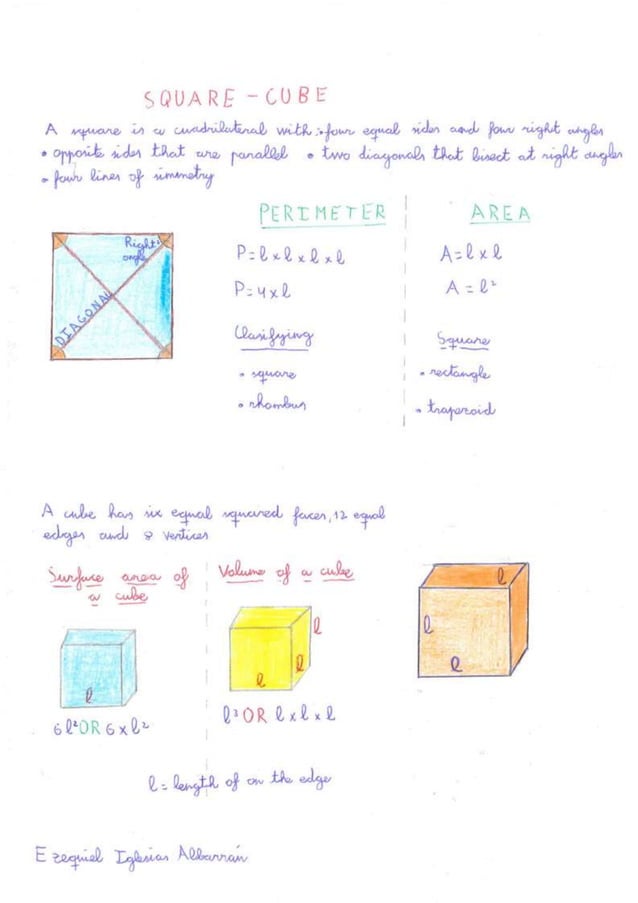 SQUARE - CUBE
A square is a cuadrilateral with: four equal sides and four right angles
• opposite sides that are parallel • two diagonals that bisect at right angles
• four lines of simmetry
PERIMETER
AREA
Right angle
DIAGONAL
P=l x l x l x l
A=l x l
P=4 x l
A = l²
Clasifying
Square
• square
• rectangle
• rhombus
• trapezoid
A cube has six equal squared faces, 12 equal
edges and 8 vertices
Surface area of
a cube
Volume of a cube
l
l
l
l
l
l
l
6l² OR 6 x l²
l³ OR l x l x l
l = length of on the edge
Ezequiel Iglesias Albarrán